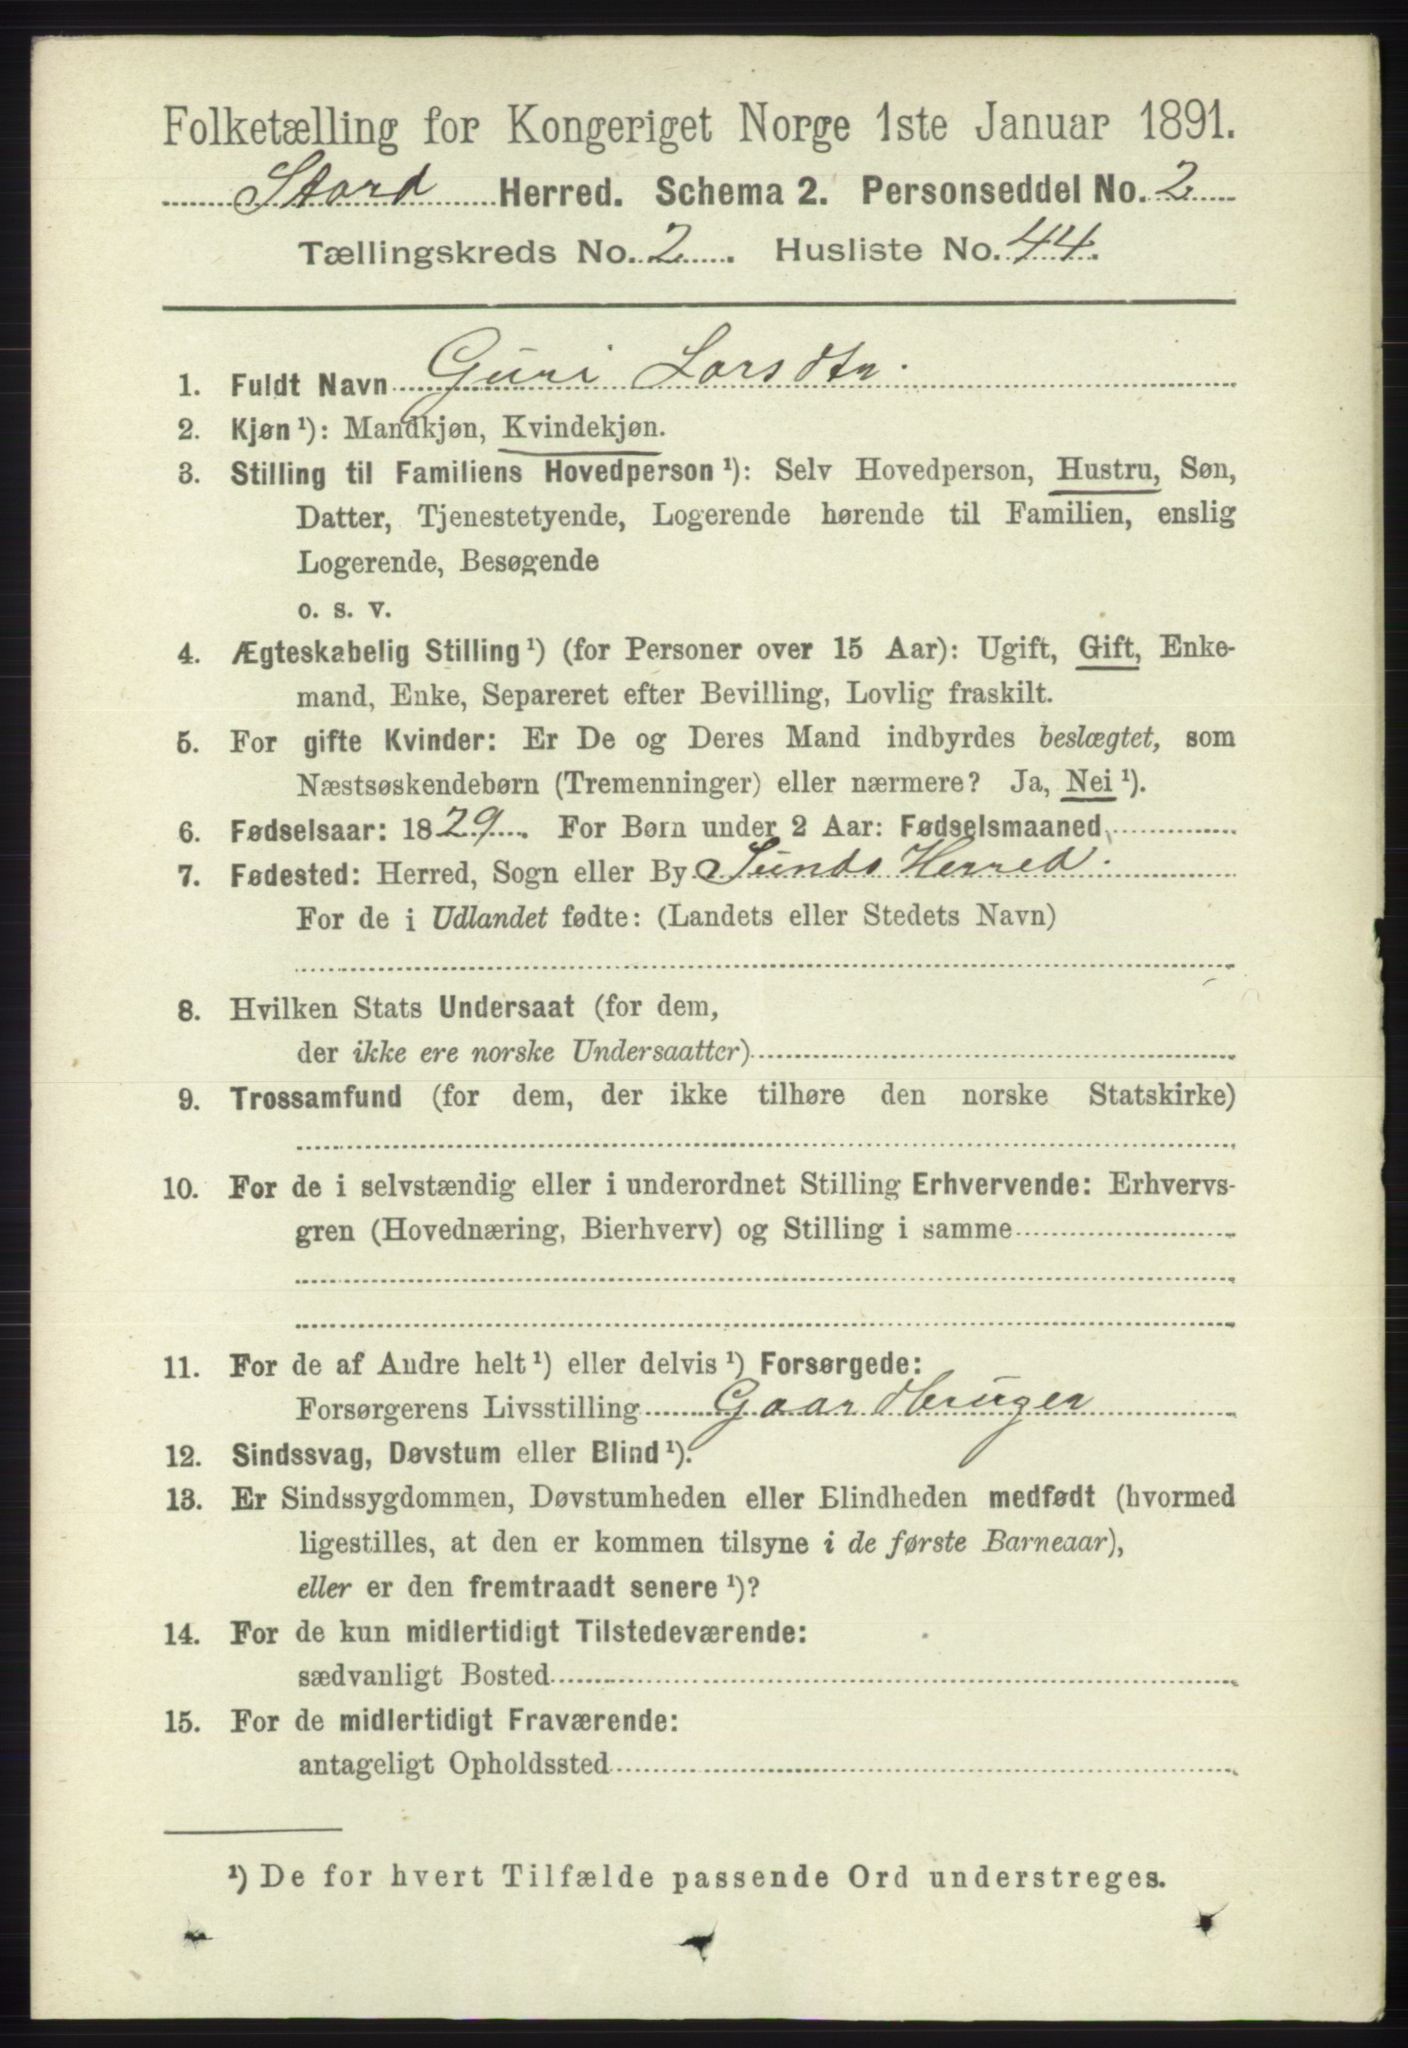 Folketælling for Kongeriget Norge 1ste Januar 1891.
Stord Herred. Schema 2. Personseddel No. 2
Tællingskreds No. 2. Husliste No. 44.
1. Fuldt Navn Guri Larsdtr.
2. Kjøn ¹): Mandkjøn, Kvindekjøn.
3. Stilling til Familiens Hovedperson ¹): Selv Hovedperson, Hustru, Søn,
Datter, Tjenestetyende, Logerende hørende til Familien, enslig
Logerende, Besøgende
o. s. v.
4. Ægteskabelig Stilling ¹) (for Personer over 15 Aar): Ugift, Gift, Enke-
mand, Enke, Separeret efter Bevilling, Lovlig fraskilt.
5. For gifte Kvinder: Er De og Deres Mand indbyrdes beslægtet, som
Næstsøskendebørn (Tremenninger) eller nærmere? Ja, Nei ¹).
6. Fødselsaar: 1829. For Børn under 2 Aar: Fødselsmaaned
7. Fødested: Herred, Sogn eller By Sunds Herred.
For de i Udlandet fødte: (Landets eller Stedets Navn)
8. Hvilken Stats Undersaat (for dem,
der ikke ere norske Undersaatter)
9. Trossamfund (for dem, der ikke tilhøre den norske Statskirke)
10. For de i selvstændig eller i underordnet Stilling Erhvervende: Erhvervs-
gren (Hovednæring, Bierhverv) og Stilling i samme
11. For de af Andre helt ¹) eller delvis ¹) Forsørgede:
Forsørgerens Livsstilling Gaardbruger
12. Sindssvag, Døvstum eller Blind ¹).
13. Er Sindssygdommen, Døvstumheden eller Blindheden medfødt (hvormed
ligestilles, at den er kommen tilsyne i de første Barneaar),
eller er den fremtraadt senere ¹)?
14. For de kun midlertidigt Tilstedeværende:
sædvanligt Bosted
15. For de midlertidigt Fraværende:
antageligt Opholdssted
¹) De for hvert Tilfælde passende Ord understreges.